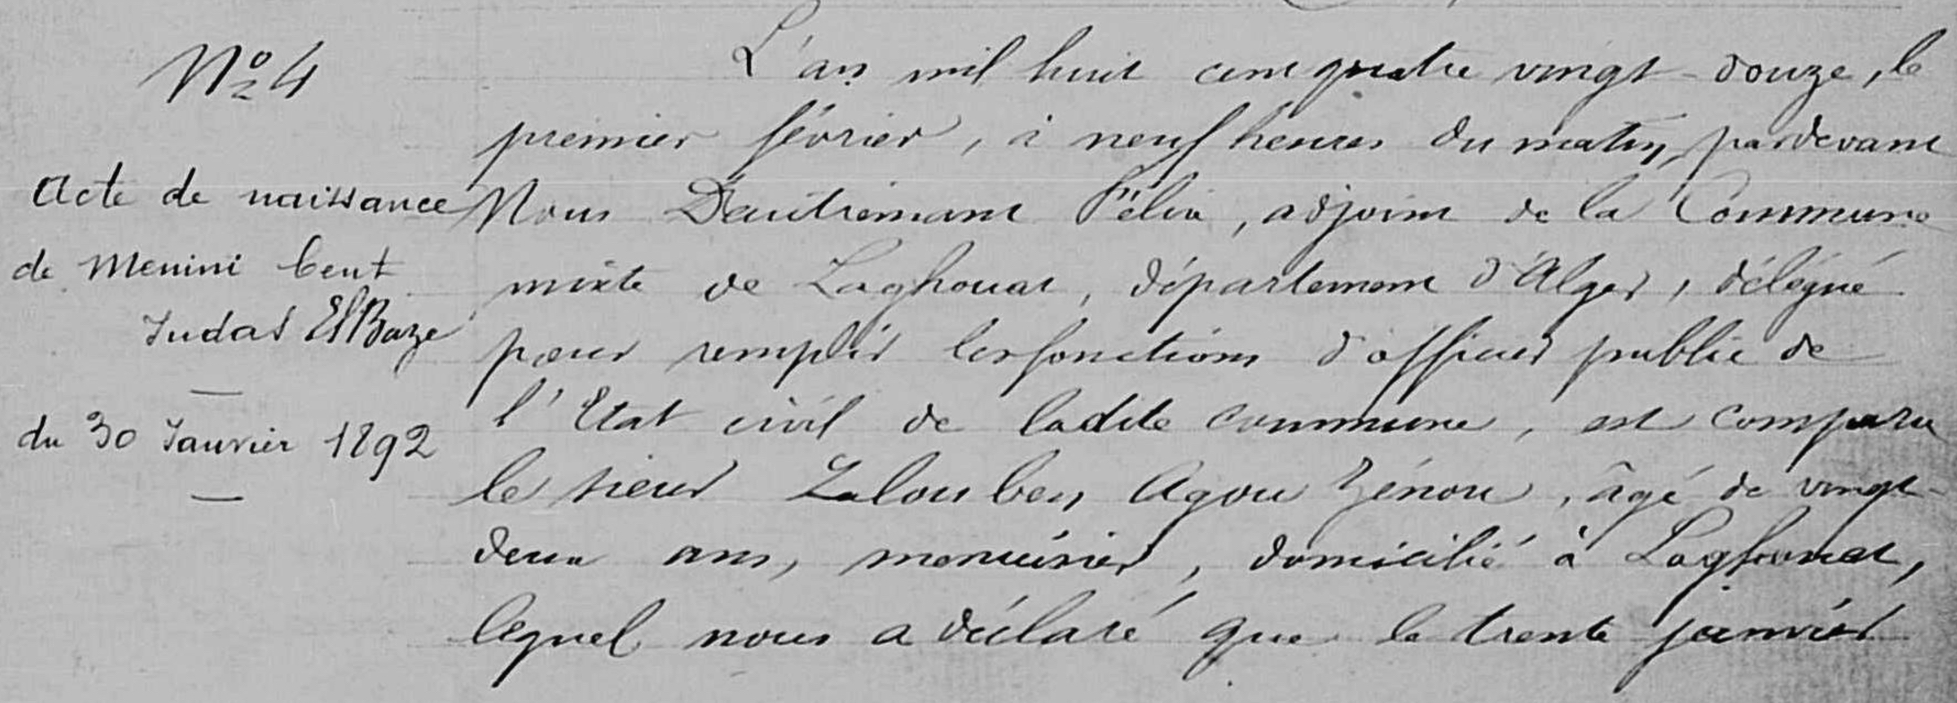 N° 4
Acte de naissance
de Menini bent
Judas El Baze
du 30 Janvier 1892
L'an mil huit cent quatre vingt douze, le
premier février, à neuf heures du matin, pardevant
Nous Dautremant Félix, adjoint de la Commune
mixte de Laghouat, département d'Alger, délégué
pour remplir les fonctions d'officier public de
l'Etat civil de ladite commune, est comparu
le sieur Zalou ben Agou Zénou, âgé de vingt
deux ans, menuisier, domicilié à Laghouat,
lequel nous a déclaré que le trente janvier